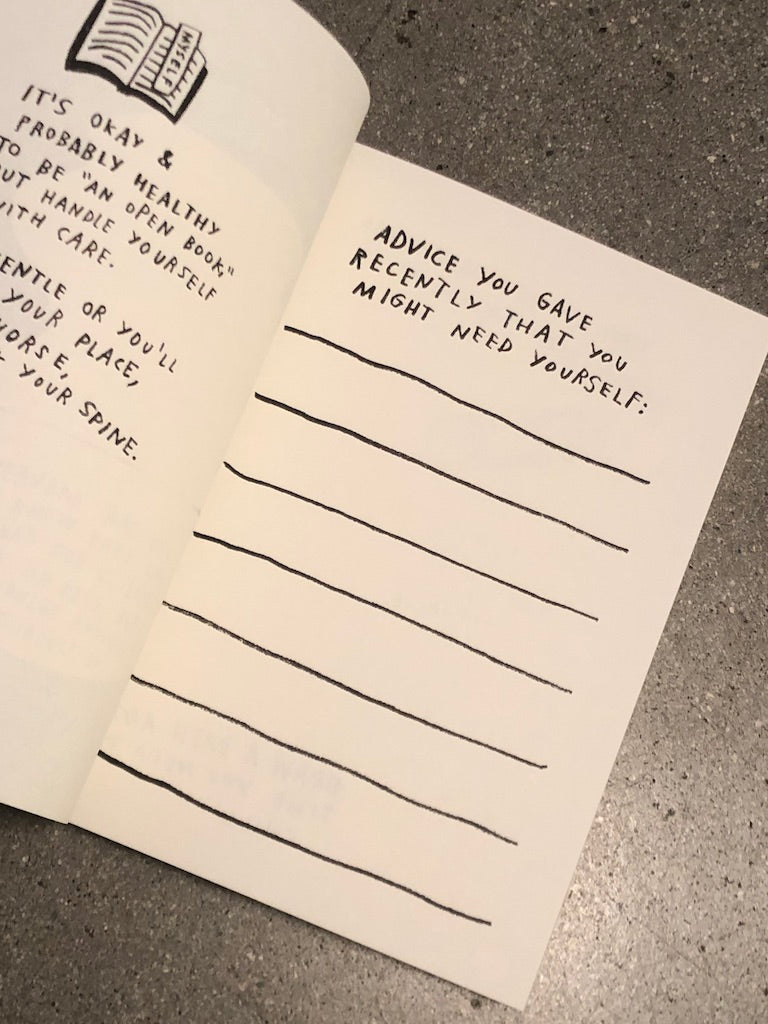 MYSELF
IT'S OKAY &
PROBABLY HEALTHY
TO BE "AN OPEN BOOK,"
BUT HANDLE YOURSELF
WITH CARE.
GENTLE OR YOU'LL
YOUR PLACE,
WORSE,
YOUR SPINE.
ADVICE YOU GAVE
RECENTLY THAT YOU
MIGHT NEED YOURSELF: